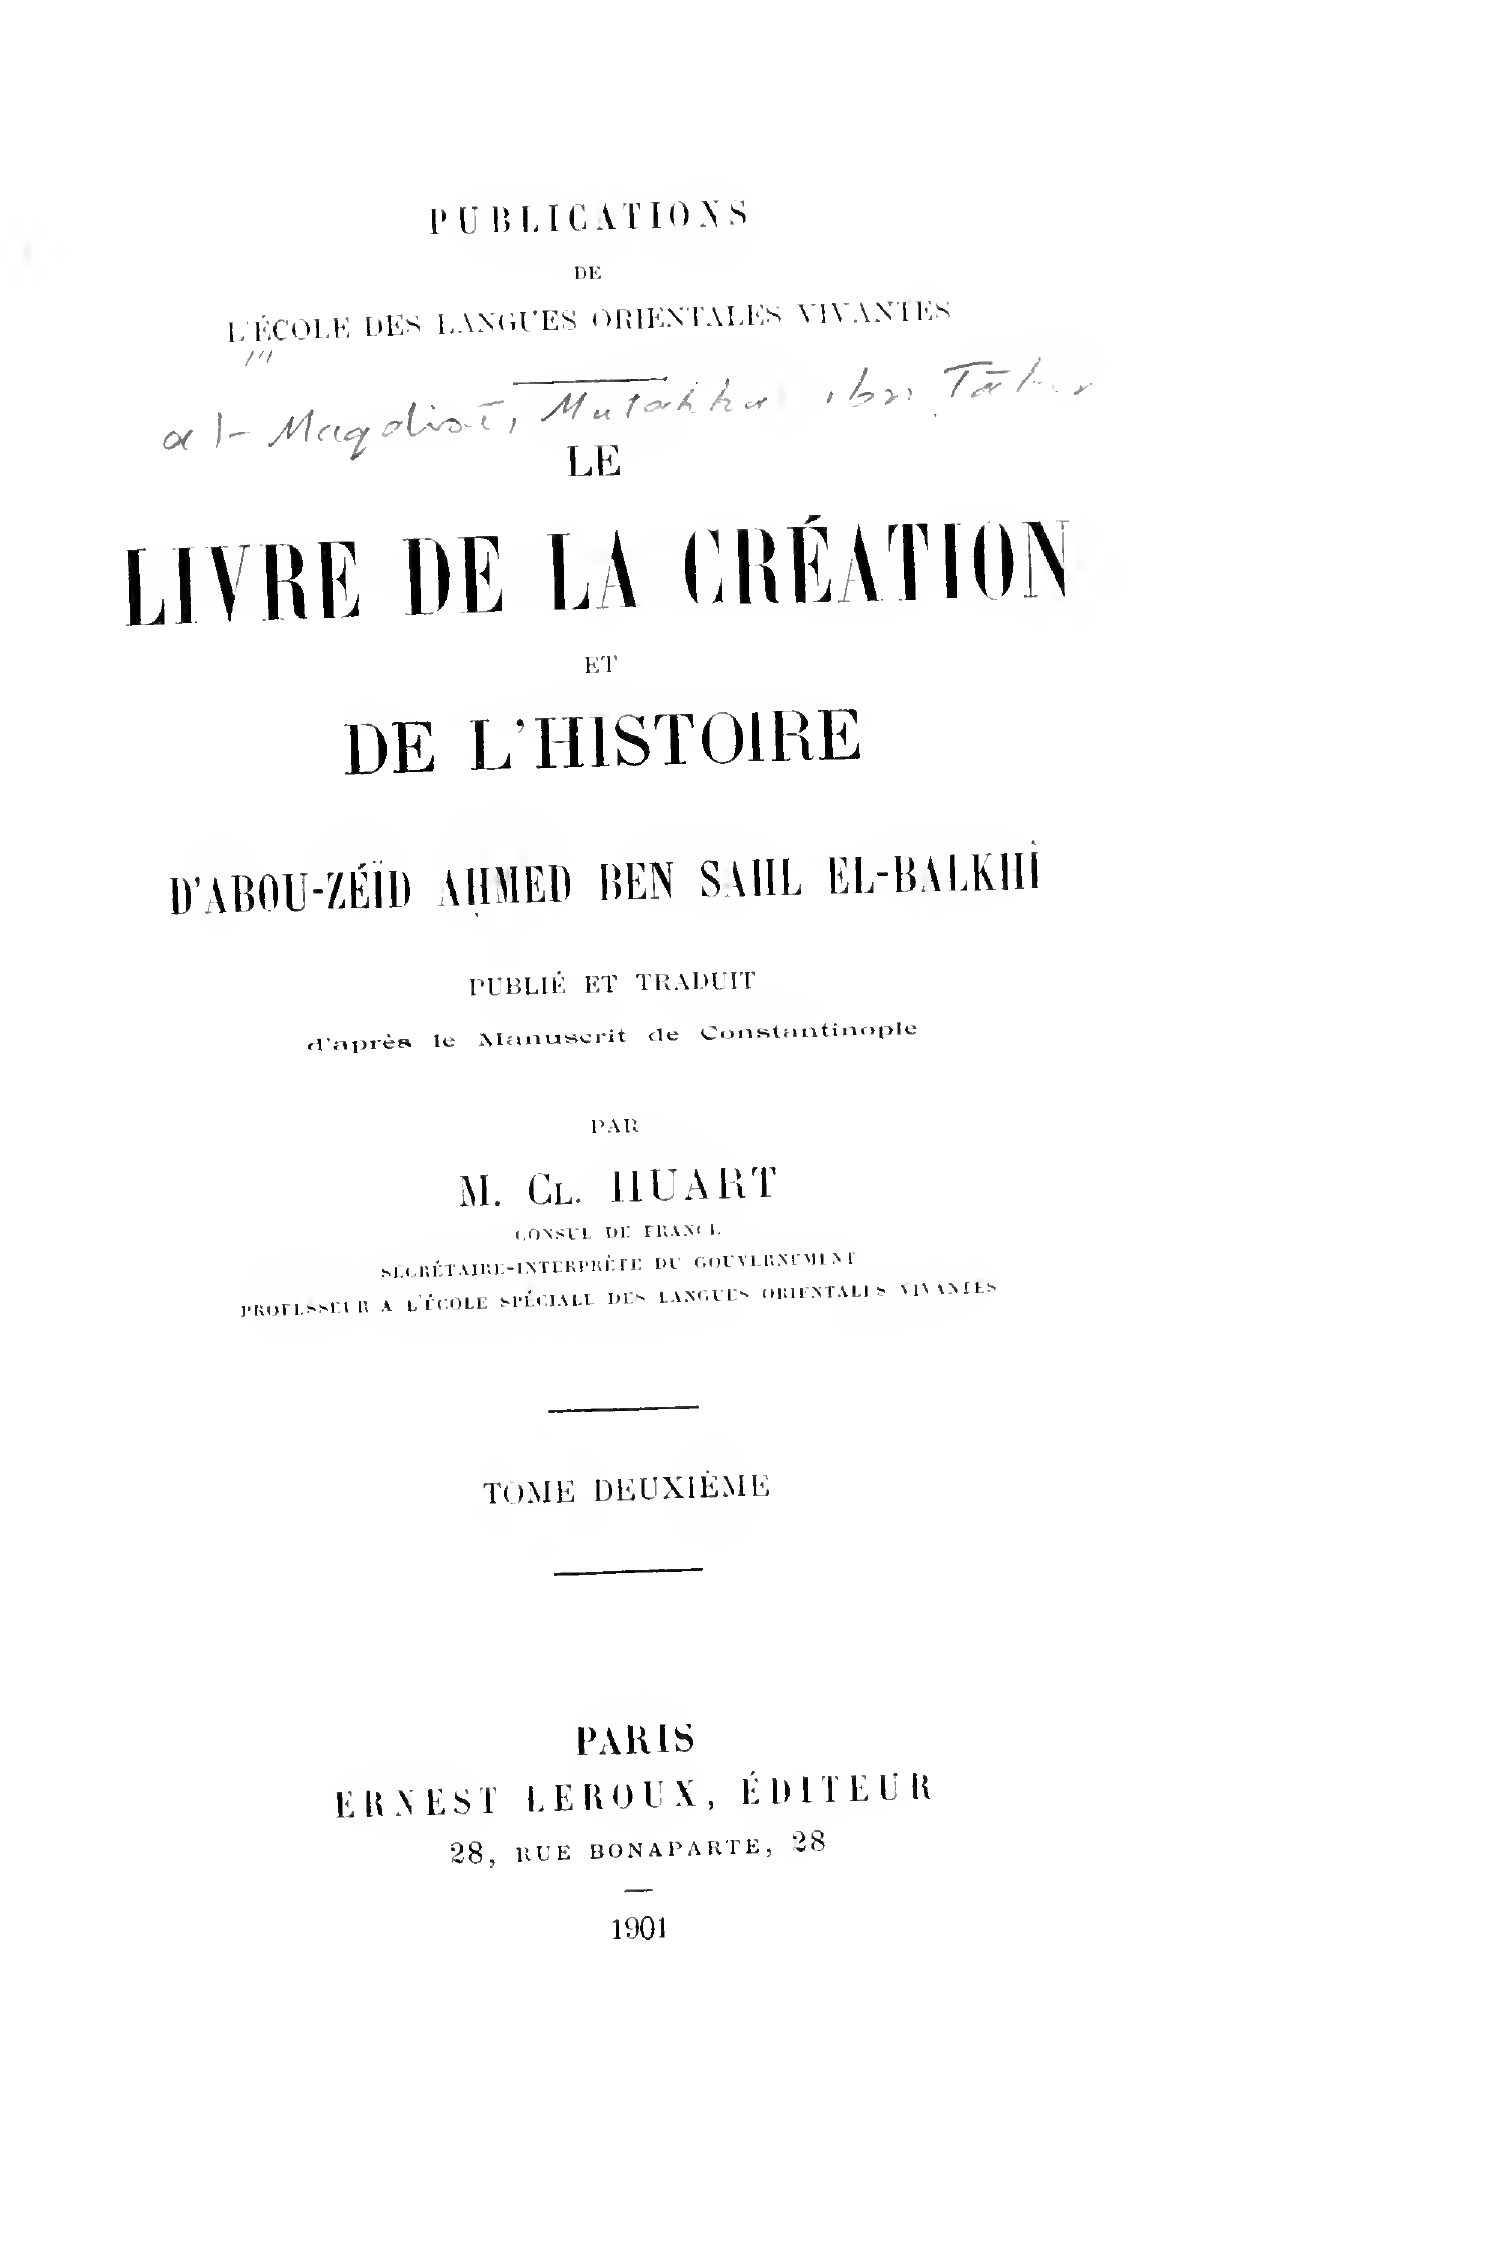 PUBLICATIONS
DE
L'ÉCOLE DES LANGUES ORIENTALES VIVANTES
al-Maqdisī, Mutahhar ibn Tāhir
LE
LIVRE DE LA CRÉATION
ET
DE L'HISTOIRE
D'ABOU-ZÉÏD AḤMED BEN SAHL EL-BALKHÎ
PUBLIÉ ET TRADUIT
d'après le Manuscrit de Constantinople
PAR
M. CL. HUART
CONSUL DE FRANCE
SECRÉTAIRE-INTERPRÈTE DU GOUVERNEMENT
PROFESSEUR A L'ÉCOLE SPÉCIALE DES LANGUES ORIENTALES VIVANTES
TOME DEUXIÈME
PARIS
ERNEST LEROUX, ÉDITEUR
28, RUE BONAPARTE, 28
1901